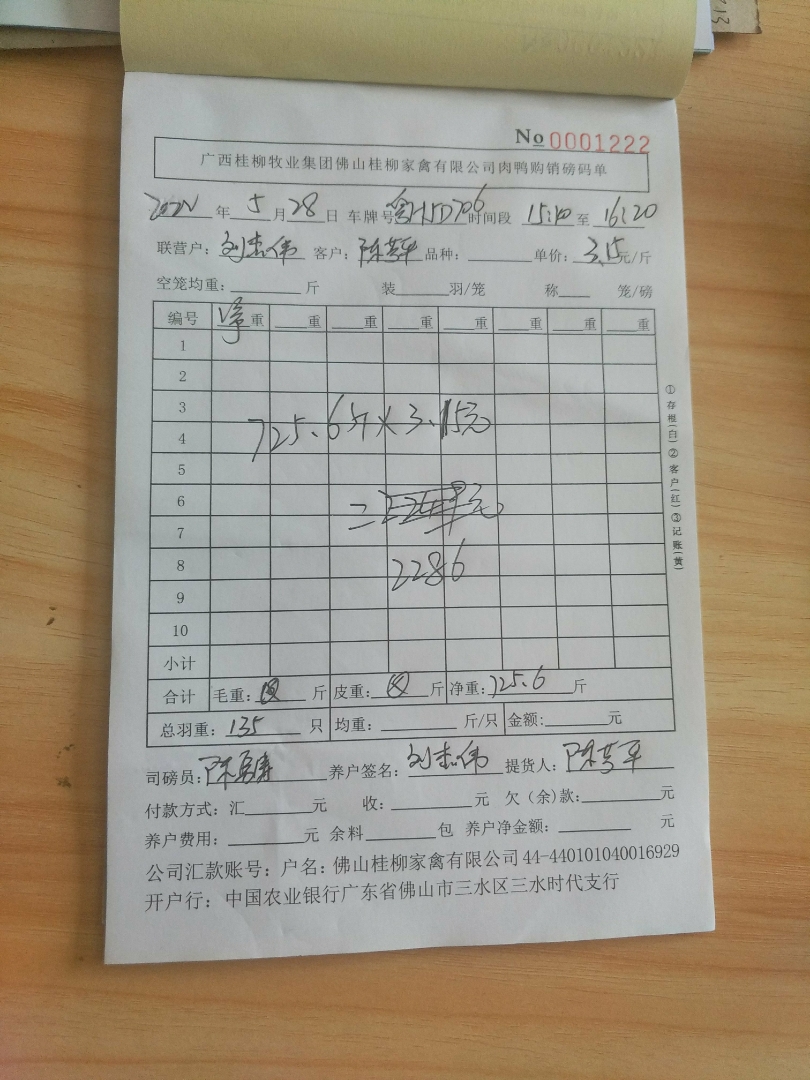 No 0001222
广西桂柳牧业集团佛山桂柳家禽有限公司肉鸭购销磅码单
年 5 月 28 日 车牌号 时间段 15:10 至 16:20
联营户: 刘志伟 客户: 陈芳平 品种: 单价: 3.15 元/斤
空笼均重: 斤 装 羽/笼 称 笼/磅
编号 净重 重 重 重 重 重 重 重
1
2
3
4
5
6
7
8
9
10
725.6斤×3.15元
2286
小计
合计 毛重: 斤 皮重: 斤 净重: 725.6 斤
总羽重: 135 只 均重: 斤/只 金额: 元
司磅员: 养户签名: 刘志伟 提货人: 陈芳平
付款方式: 汇 元 收: 元 欠(余)款: 元
养户费用: 元 余料 包 养户净金额: 元
公司汇款账号: 户名: 佛山桂柳家禽有限公司 44-440101040016929
开户行: 中国农业银行广东省佛山市三水区三水时代支行
①存根(白)②客户(红)③记账(黄)